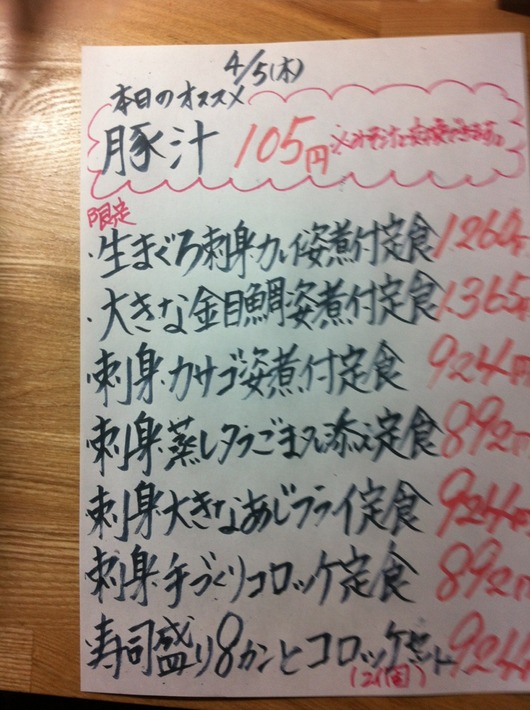 4/5(木)
本日のオススメ
豚汁 105円 ※みそ汁と交換できます。
限定
・生まぐろ刺身・カレイ姿煮付定食 1260円
・大きな金目鯛姿煮付定食 1365円
・刺身・カサゴ姿煮付定食 924円
・刺身・蒸しタラごまダレ添え定食 892円
・刺身・大きなあじフライ定食 924円
・刺身・手づくりコロッケ定食 892円
・寿司盛り8カンとコロッケセット 924
(2個)